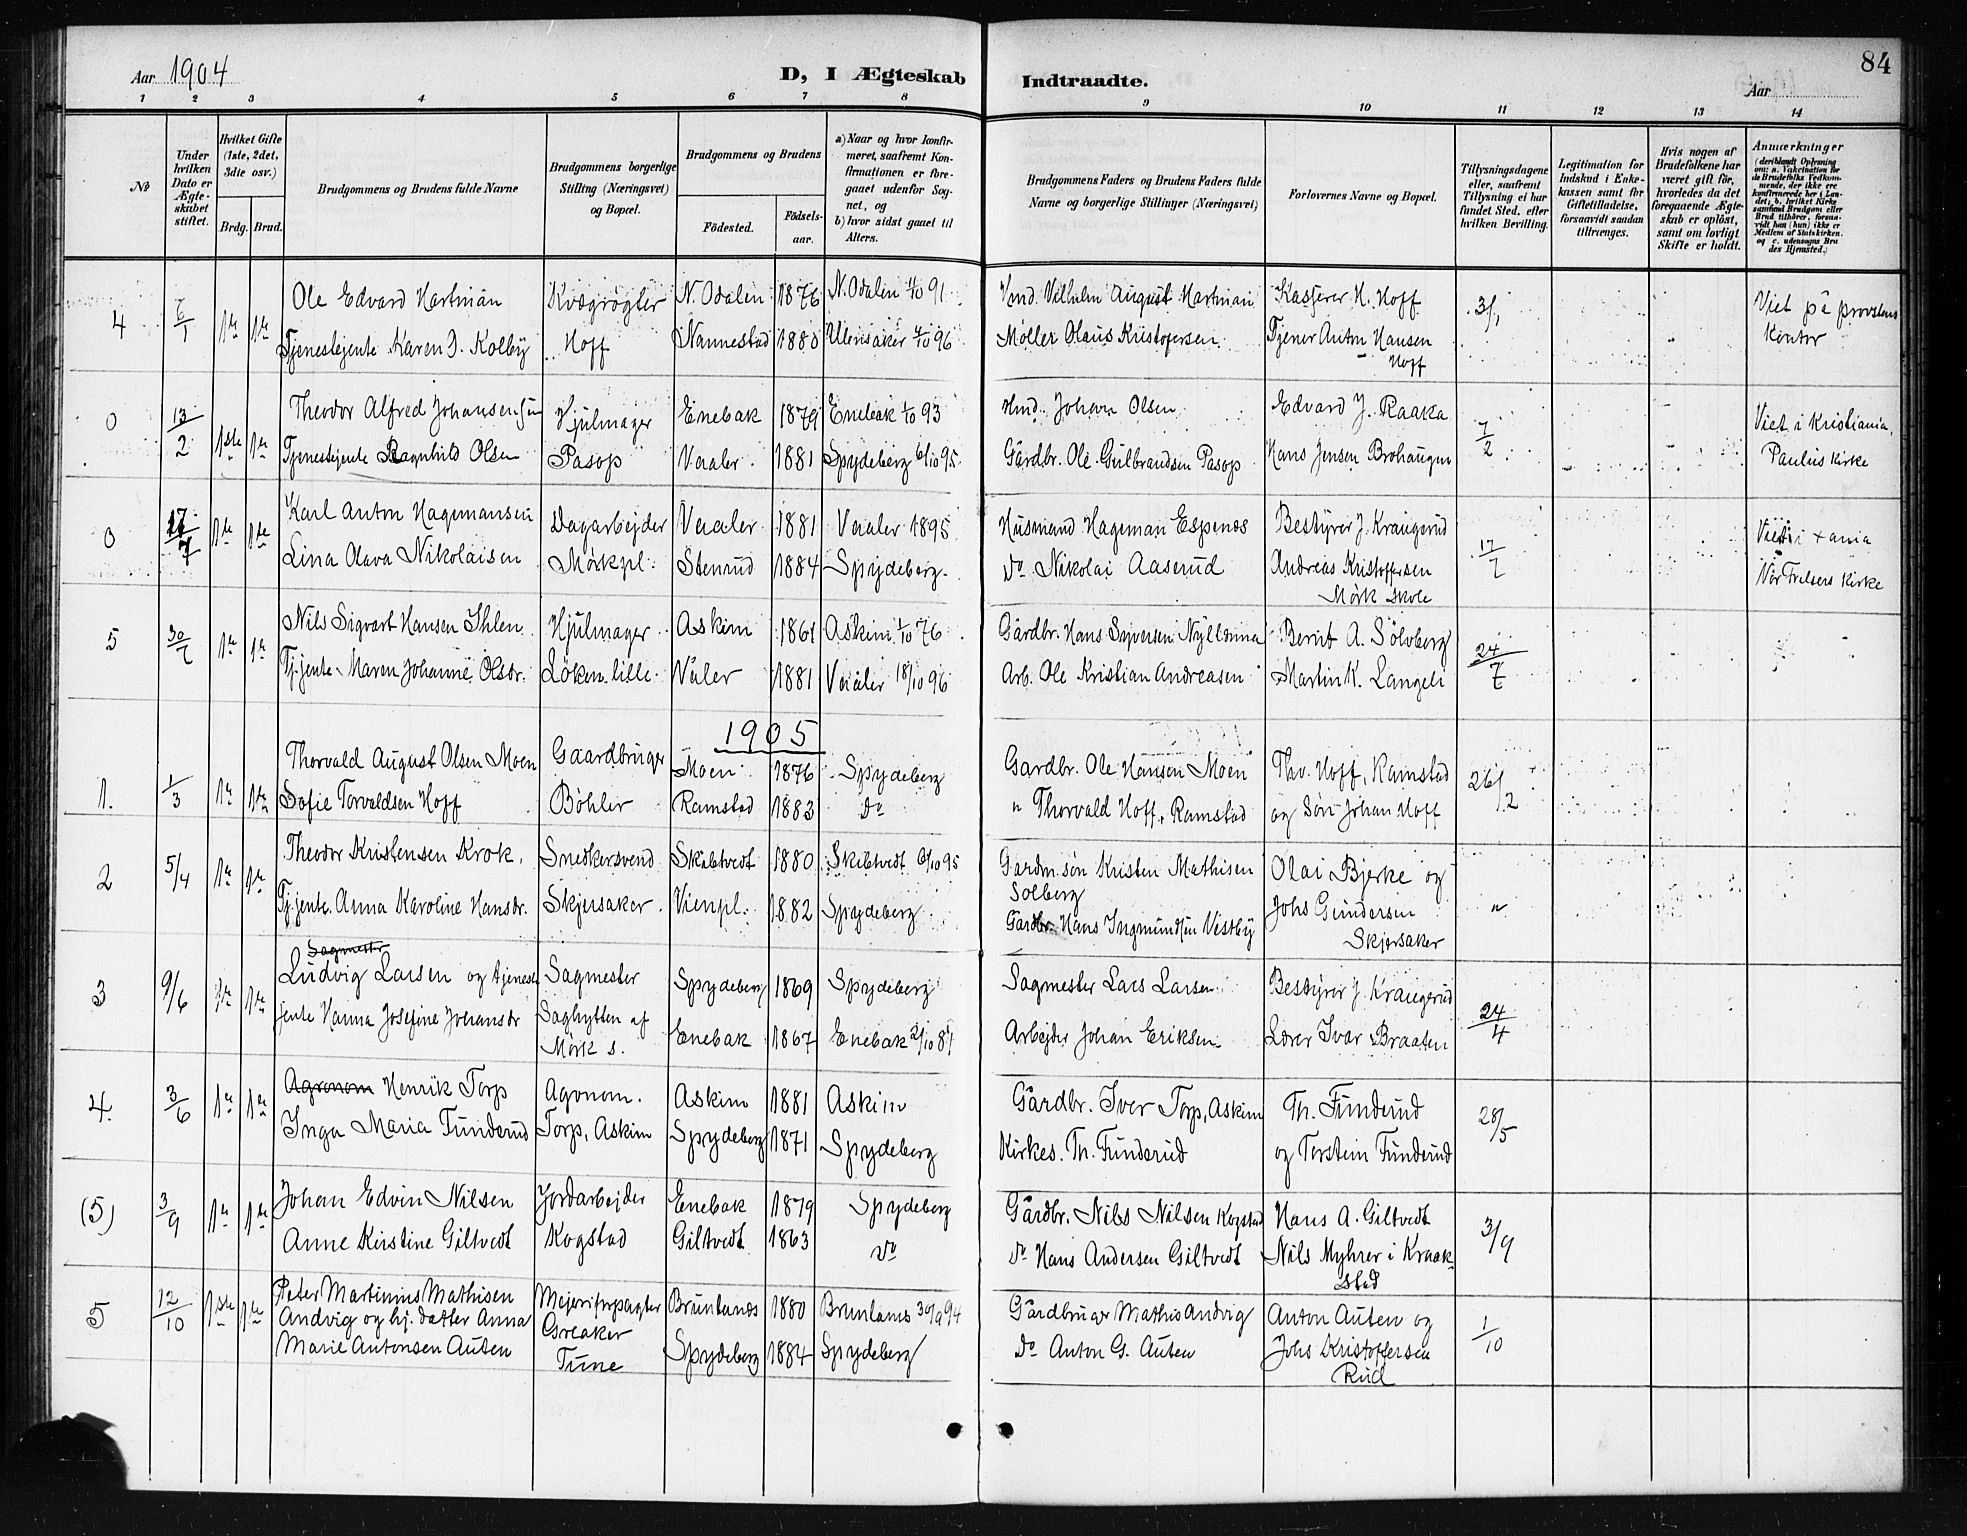 84
Aar 1904
D, I Ægteskab Indtraadte.
Aar
1 2 3 4 5 6 7 8 9 10 11 12 13 14
No
Under hvilken Dato er Ægteskabet stiftet.
Hvilket Gifte (1ste, 2det, 3dte osv.)
Brdg. Brud.
Brudgommens og Brudens fulde Navne
Brudgommens borgerlige Stilling (Næringsvei) og Bopæl.
Brudgommens og Brudens
Fødested. Fødselsaar.
a) Naar og hvor konfirmeret, saafremt Konfirmationen er foregaaet udenfor Sognet, og
b) hvor sidst gaaet til Alters.
Brudgommens Faders og Brudens Faders fulde Navne og borgerlige Stillinger (Næringsvei)
Forlovernes Navne og Bopæl.
Tillysningsdagene eller, saafremt Tillysning ei har fundet Sted, efter hvilken Bevilling.
Legitimation for Indskud i Enkekassen samt for Giftetilladelse, forsaavidt saadan tiltrænges.
Hvis nogen af Brudefolkene har været gift før, hvorledes da det foregaaende Ægteskab er opløst, samt om lovligt Skifte er holdt.
Anmærkninger
(deriblandt Oplysning om: a. Vakcination for de Brudefolks Vedkommende, der ikke ere konfirmerede her i Landet; b. hvilket Kirkesamfund Brudgom eller Brud tilhører, forsaavidt han (hun) ikke er Medlem af Statskirken, og c. udensogns Brudes Hjemsted.)
4 1ste 1ste Ole Edvard Hartman Kvægrøgter N. Odalen 1876 N. Odalen 4/10 91 Hmd. Vilhelm August Hartman Kasserer H. Hoff 3/1 Viet på provstens
Tjenestejente Karen J. Kolby Hoff Nannestad 1880 Ullensaker 4/10 96 Møller Olaus Kristofersen Tjener Anton Hansen Kontor
Hoff
0 13/2 1ste 1ste Theodor Alfred Johansen Hjulmager Enebak 1879 Enebak 1/10 93 Hmd. Johan Olsen Edvard J. Raaka 7/2 Viet i Kristiania,
Tjenestejente Ragnhild Olsen Pasop Vaaler 1881 Spydeberg 6/10 95 Gårdbr. Ole Gulbrandsen Pasop Hans Jensen Brohaugen Paulus kirke
0 17/7 1ste 1ste Karl Anton Hagemansen Dagarbejder Vaaler 1881 Vaaler 1895 Husmand Hageman Espenes Bestyrer J. Kraugerud Viet i Xania
Lina Olava Nikolaisen Mørkpl. Stenrud 1884 Spydeberg Do Nikolai Aaserud Andreas Kristoffersen Vor Frelsers kirke
Mørk skole
5 1ste 1ste Nils Sigvart Hansen Ihlen Hjulmager Askim 1861 Askim 1/10 76 Gårdbr. Hans Syversen Bernt A. Sölvberg
Tj.jente Maren Johanne Olsdr. Löken lille Våler 1881 Vaaler 18/10 96 Arb. Ole Kristian Andreasen Martin K. Langeli
1905
1. 1/3 1ste 1ste Thorvald August Olsen Moen Gaardbruger Moen 1876 Spydeberg Gardbr. Ole Hansen Moen Thv. Hoff, Ramstad 26/2
Sofie Torvaldsen Hoff Böhler Ramstad 1883 Do " Thorvald Hoff, Ramstad og Sön Johan Hoff
2 5/4 1ste 1ste Theodor Kristensen Krok. Snedkersvend Skibtvedt 1880 Skibtvedt 6/10 95 Gardm.søn Kristen Mathisen Solberg Olai Bjerke og "
Tj.jente. Anna Karoline Hansdr. Skjersaker Vienpl. 1882 Spydeberg Gardbr. Hans Ingmundsen Vestby Johs Gundersen
Skjersaker
3 9/6 1ste 1ste Sagmester Ludvig Larsen og tjeneste Sagmester Spydeberg 1869 Spydeberg Sagmester Lars Larsen Bestyrer J. Kraugerud 24/4
jente Hanna Josefine Johansdr Saghytten af Mørk s. Enebak 1867 Enebak 2/10 81 Arbejder Johan Eriksen Lærer Ivar Braaten
4. 3/6 1ste 1ste Agronom Henrik Torp Agronom. Askim 1881 Askim Gårdbr. Iver Torp, Askim Th. Funderud 28/5
Inga Maria Funderud Torp, Askim Spydeberg 1871 Spydeberg Kirkes. Th. Funderud og Torstein Funderud
(5) 3/9 1ste 1ste Johan Edvin Nilsen Jordarbejder Enebak 1879 Spydeberg Gårdbr. Nils Nilsen Kogstad Hans A. Giltvedt 3/9
Anne Kirstine Giltvedt Kogstad Giltvedt 1863 Do Do Hans Andersen Giltvedt Nils Myhrer i Kraak-
stad
5 12/10 1ste 1ste Peter Martinius Mathisen Mejeriforpagter Brunlanæs 1880 Brunlanes 30/9 94 Gårdbruger Mathis Andvig Anton Auten og 1/10
Andvig og hj. datter Anna Greaker Spydeberg 1884 Spydeberg Do Anton G. Auten Johs Kristoffersen
Marie Antonsen Auten Tune Rud